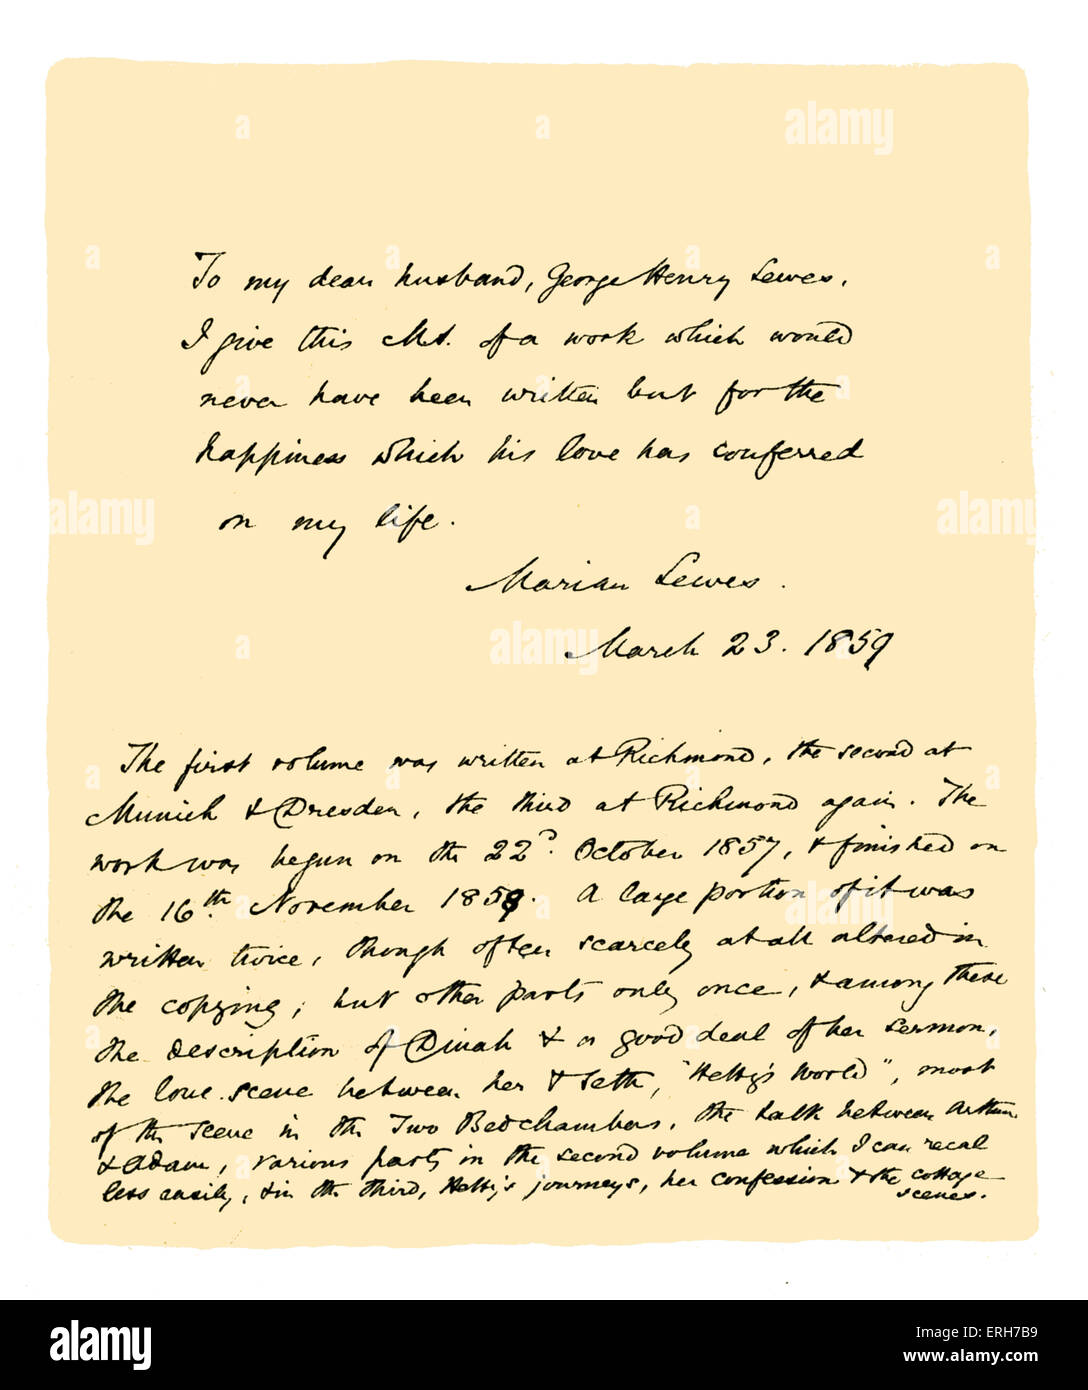 To my dear husband, George Henry Lewes,
I give this M.S. of a work which would
never have been written but for the
happiness which his love has conferred
on my life.
Marian Lewes.
March 23. 1859
The first volume was written at Richmond, the second at
Munich & Dresden, the third at Richmond again. The
work was begun on the 22d. October 1857, & finished on
the 16th November 1858. A large portion of it was
written twice, though often scarcely at all altered in
the copying; but other parts only once, & among these
the description of Dinah & a good deal of her sermon,
the love-scene between her & Seth, "Hetty's World", most
of the scene in the Two Bedchambers, the talk between Arthur
& Adam, various parts in the second volume which I can recal
less easily, & in the third, Hetty's journeys, her confession & the cottage
scenes.
alamy
a
Image ID: ERH7B9
www.alamy.com